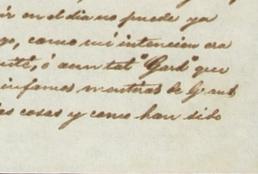 ir en el dia no puede ya
go, como mi intencion era
ente, ó a un tal "Gard" que
infames mentiras de
las cosas y como han sido